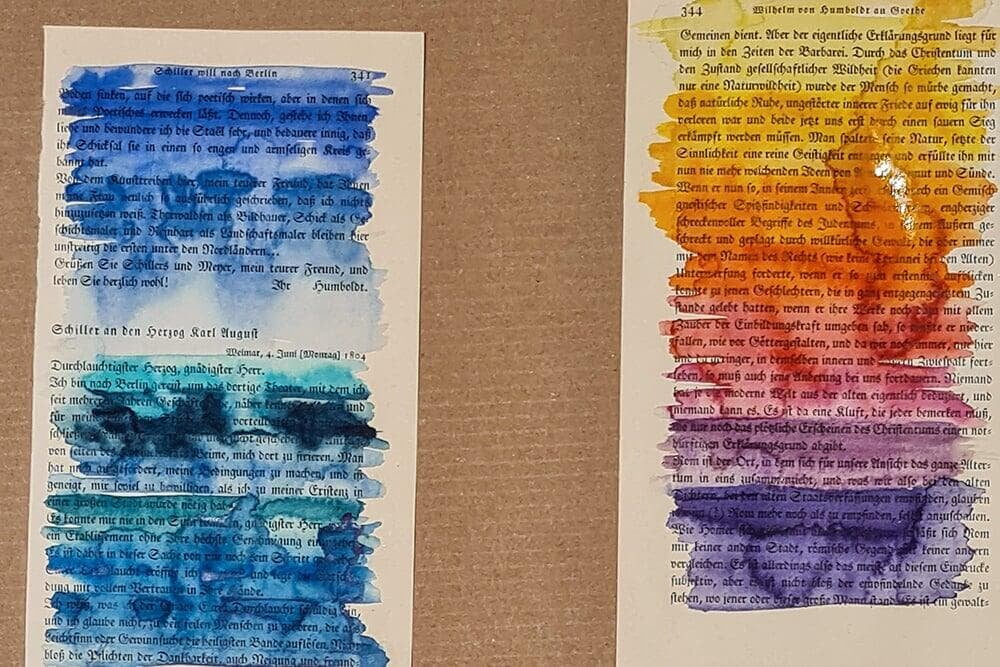 Schiller will nach Berlin 341
Boden sinken, auf die sich poetisch wirken, aber in denen sich
Poetisches erwecken läßt. Dennoch, gestehe ich Ihnen,
liebe und bewundere ich die Staël sehr, und bedaure innig, daß
ihr Schicksal sie in einen so engen und armseligen Kreis ge-
bannt hat.
Von dem Kunsttreiben hier, mein teurer Freund, hat Ihnen
meine Frau neulich ausführlich geschrieben, daß ich nichts
hinzuzusetzen weiß. Thorwaldsen als Bildhauer, Schick als Ge-
schichtsmaler und Reinhart als Landschaftsmaler bleiben hier
unstreitig die ersten unter den Nordländern...
Grüßen Sie Schillers und Meyer, mein teurer Freund, und
leben Sie herzlich wohl! Ihr Humboldt.
Schiller an den Herzog Karl August
Weimar, 4. Juni [Montag] 1804
Durchlauchtigster Herzog, gnädigster Herr.
Ich bin nach Berlin gereist, um das dortige Theater, mit dem ich
seit mehreren Jahren Geschäfte näher kennen und
für meine vorteil
schließen
von seiten des Wunsch, mich dort zu fixieren. Man
hat mich aufgefordert, meine Bedingungen zu machen, und ist
geneigt, mir soviel zu bewilligen, als ich zu meiner Existenz in
einer großen Stadt würde nötig haben.
Es konnte mir nie in den Sinn kommen, gnädigster Herr,
ein Etablissement ohne Ihre höchste Genehmigung einzugehen.
Es ist daher in dieser Sache von mir noch kein Schritt
Durchlaucht eröffne ich und lege
dung mit vollem Vertrauen in Ihre Hände.
Ich weiß, was ich der Gnade Eurer Durchlaucht schuldig bin,
und ich glaube nicht, zu den feilen Menschen zu gehören, die aus
Leichtsinn oder Gewinnsucht die heiligsten Bande auflösen. Nicht
bloß die Pflichten der Dankbarkeit, auch Neigung und freund-
344 Wilhelm von Humboldt an Goethe
Gemeinen dient. Aber der eigentliche Erklärungsgrund liegt für
mich in den Zeiten der Barbarei. Durch das Christentum und
den Zustand gesellschaftlicher Wildheit (die Griechen kannten
nur eine Naturwildheit) wurde der Mensch so mürbe gemacht,
daß natürliche Ruhe, ungestörter innerer Friede auf ewig für ihn
verloren war und beide jetzt uns erst durch einen sauern Sieg
erkämpft werden müssen. Man spaltete seine Natur, setzte der
Sinnlichkeit eine reine Geistigkeit entgegen und erfüllte ihn mit
nun nie mehr weichenden Ideen von Armut und Sünde.
Wenn er nun so, in seinem Innern durch ein Gemisch
gnostischer Spitzfindigkeiten und engherziger
schreckenvoller Begriffe des Judentums, in seinem Äußern ge-
schreckt und geplagt durch willkürliche Gewalt, die aber immer
mit dem Namen des Rechts (wie keine Tyrannei bei den Alten)
Unterwerfung forderte, wenn er so den erstenmal aufblicken
konnte zu jenen Geschlechtern, die in ganz entgegengesetztem Zu-
stande gelebt hatten, wenn er ihre Werke noch dazu mit allem
Zauber der Einbildungskraft umgeben sah, so mußte er nieder-
fallen, wie vor Göttergestalten, und da wir noch immer, nur hier
und da geringer, in demselben innern und äußern Zwiespalt fort-
leben, so muß auch jene Anbetung bei uns fortdauern. Niemand
hat je die moderne Welt aus der alten eigentlich deduziert, und
niemand kann es. Es ist da eine Kluft, die jeder bemerken muß,
wo nur noch das plötzliche Erscheinen des Christentums einen not-
dürftigen Erklärungsgrund abgibt.
Rom ist der Ort, in dem sich für unsere Ansicht das ganze Alter-
tum in eins zusammenzieht, und was wir also bei den alten
Dichtern, bei den alten Staatsverfassungen empfinden, glauben
wir in Rom mehr noch als zu empfinden, selbst anzuschauen.
Wie Homer sich nicht mit andern Dichtern, so läßt sich Rom
mit keiner andern Stadt, römische Gegend mit keiner andern
vergleichen. Es ist allerdings also das meiste an diesem Eindrucke
subjektiv, aber es ist nicht bloß der empfindelnde Gedanke zu
stehen, wo jener oder dieser große Mann stand. Es ist ein gewalt-